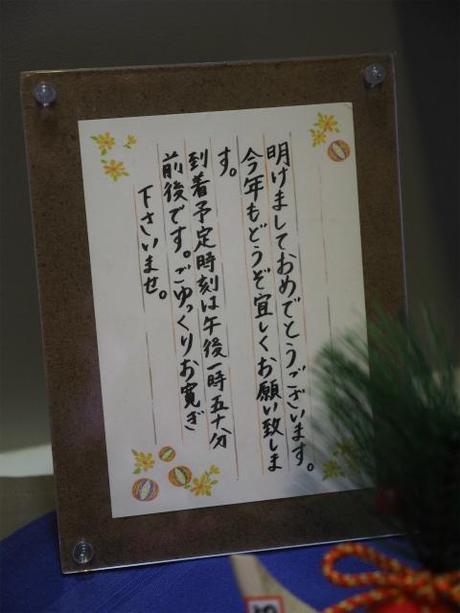 明けましておめでとうございます。
今年もどうぞ宜しくお願い致しま
す。
到着予定時刻は午後一時五十分
前後です。ごゆっくりお寛ぎ
下さいませ。